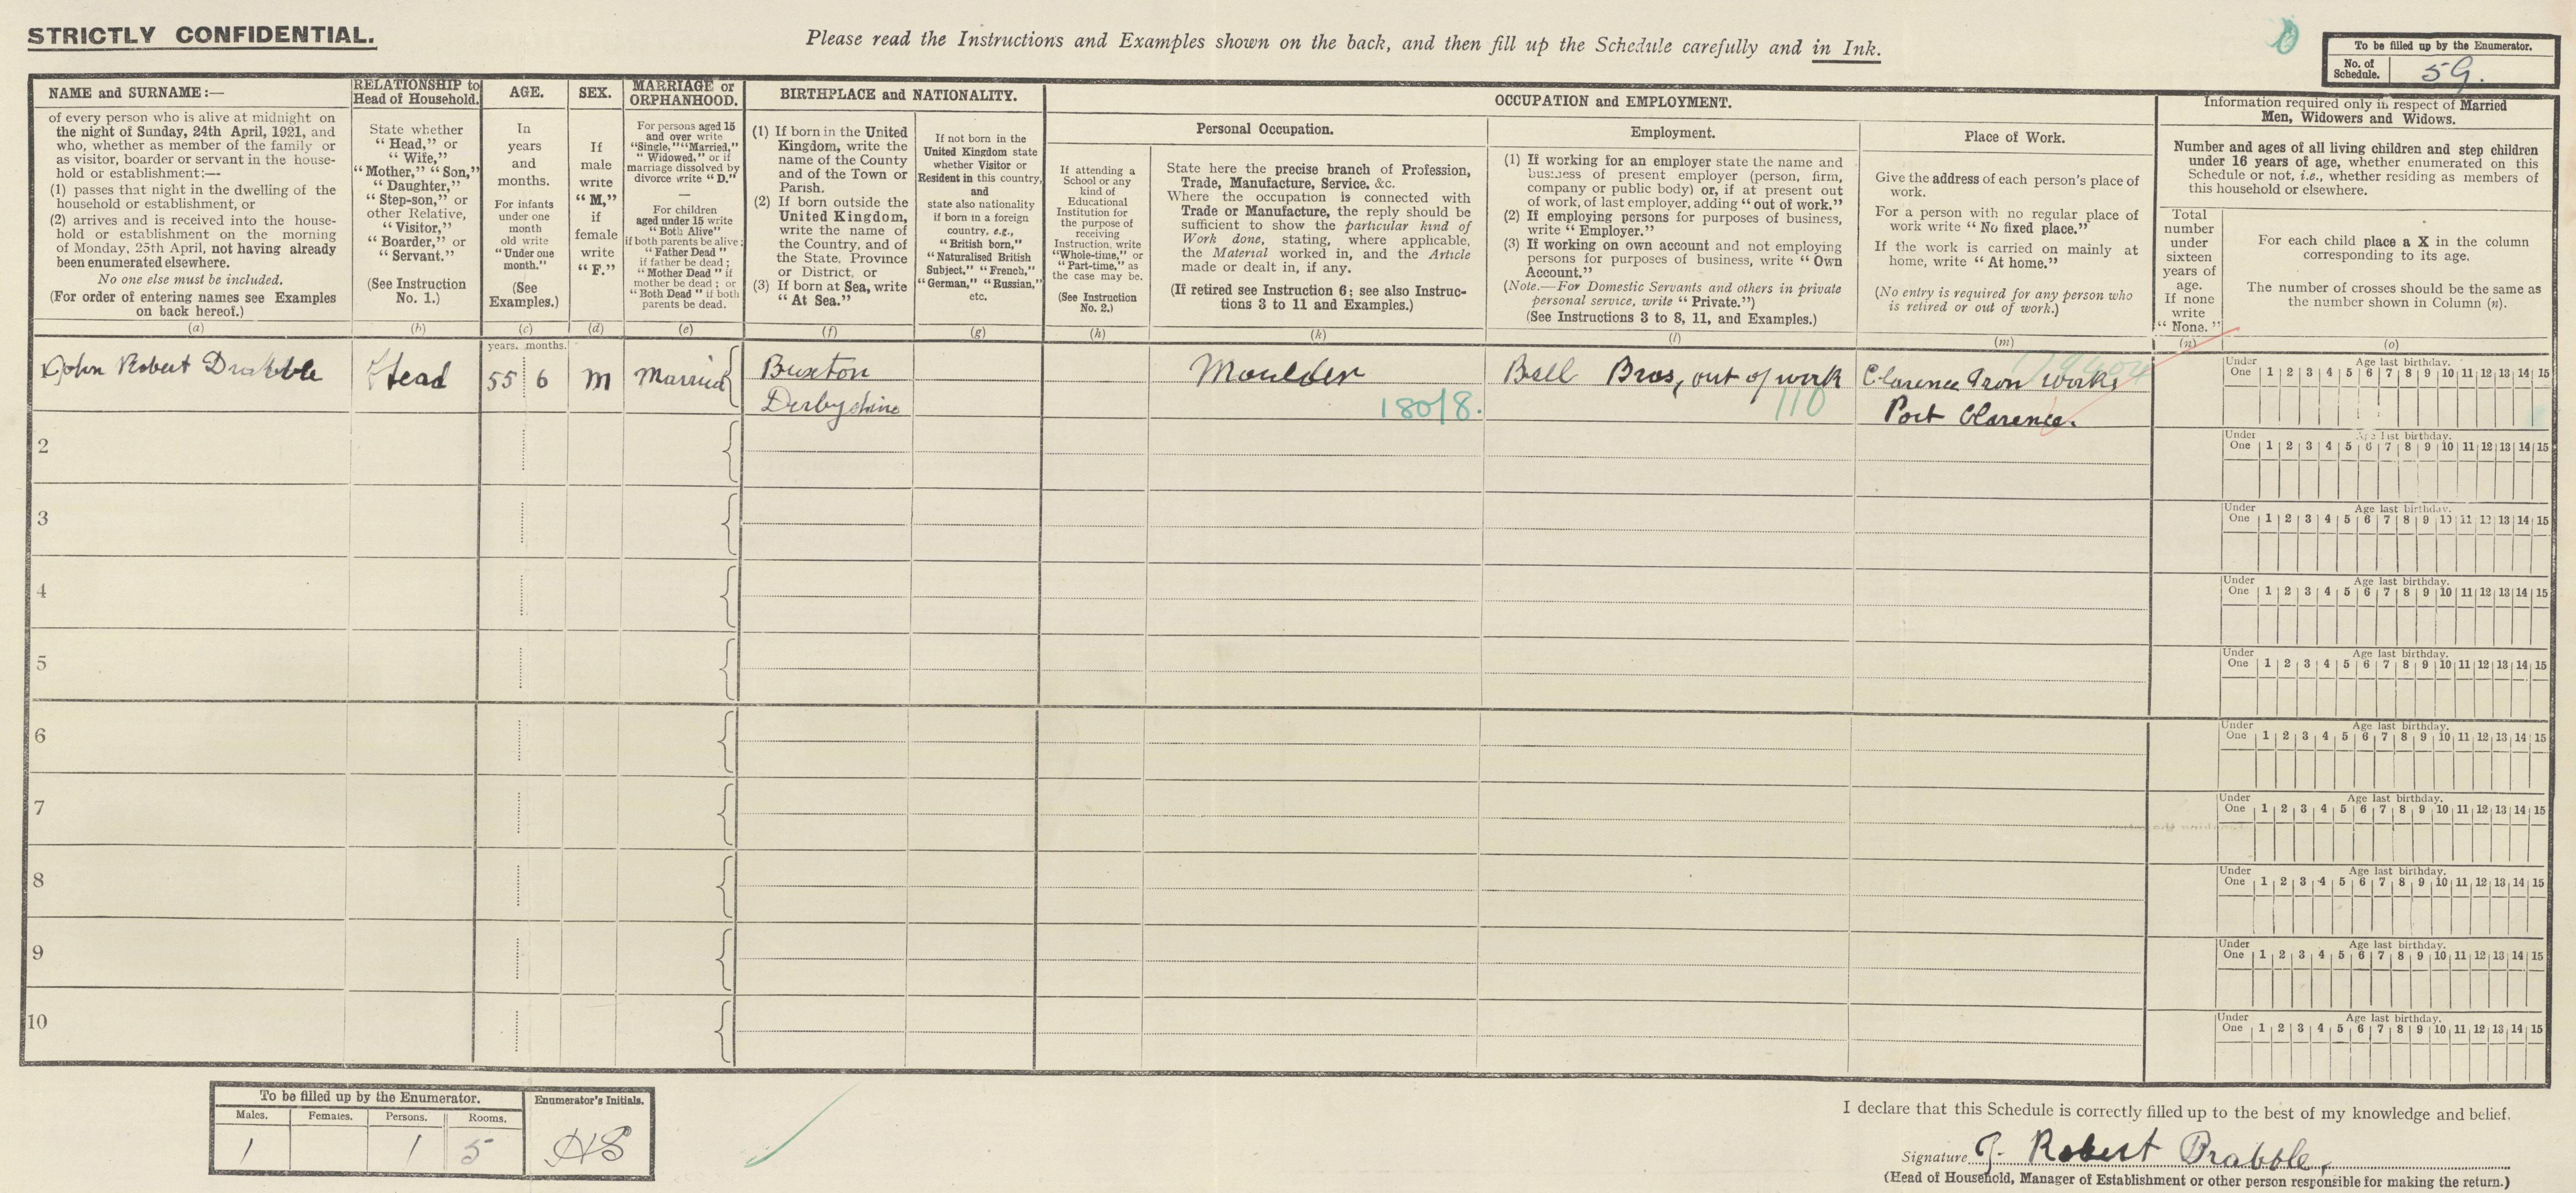 STRICTLY CONFIDENTIAL.
Please read the Instructions and Examples shown on the back, and then fill up the Schedule carefully and in Ink.
To be filled up by the Enumerator.
No. of Schedule. 59.
NAME and SURNAME:—
of every person who is alive at midnight on
the night of Sunday, 24th April, 1921, and
who, whether as member of the family or
as visitor, boarder or servant in the house-
hold or establishment:—
(1) passes that night in the dwelling of the
household or establishment, or
(2) arrives and is received into the house-
hold or establishment on the morning
of Monday, 25th April, not having already
been enumerated elsewhere.
No one else must be included.
(For order of entering names see Examples
on back hereof.)
(a)
RELATIONSHIP to
Head of Household.
State whether
"Head," or
"Wife,"
"Mother," "Son,"
"Daughter,"
"Step-son," or
other Relative,
"Visitor,"
"Boarder," or
"Servant."
(See Instruction
No. 1.)
(b)
AGE.
In
years
and
months.
For infants
under one
month
old write
"Under one
month."
(See
Examples.)
(c)
SEX.
If
male
write
"M,"
if
female
write
"F."
(d)
MARRIAGE or
ORPHANHOOD.
For persons aged 15
and over write
"Single," "Married,"
"Widowed," or if
marriage dissolved by
divorce write "D."
—
For children
aged under 15 write
"Both Alive"
if both parents be alive;
"Father Dead"
if father be dead;
"Mother Dead" if
mother be dead; or
"Both Dead" if both
parents be dead.
(e)
BIRTHPLACE and NATIONALITY.
(1) If born in the United
Kingdom, write the
name of the County
and of the Town or
Parish.
(2) If born outside the
United Kingdom,
write the name of
the Country, and of
the State, Province
or District, or
(3) If born at Sea, write
"At Sea."
(f)
If not born in the
United Kingdom state
whether Visitor or
Resident in this country,
and
state also nationality
if born in a foreign
country, e.g.,
"British born,"
"Naturalised British
Subject," "French,"
"German," "Russian,"
etc.
(g)
OCCUPATION and EMPLOYMENT.
Personal Occupation.
If attending a
School or any
kind of
Educational
Institution for
the purpose of
receiving
Instruction, write
"Whole-time," or
"Part-time," as
the case may be.
(See Instruction
No. 2.)
(h)
State here the precise branch of Profession,
Trade, Manufacture, Service, &c.
Where the occupation is connected with
Trade or Manufacture, the reply should be
sufficient to show the particular kind of
Work done, stating, where applicable,
the Material worked in, and the Article
made or dealt in, if any.
(If retired see Instruction 6; see also Instruc-
tions 3 to 11 and Examples.)
(k)
Employment.
(1) If working for an employer state the name and
business of present employer (person, firm,
company or public body) or, if at present out
of work, of last employer, adding "out of work."
(2) If employing persons for purposes of business,
write "Employer."
(3) If working on own account and not employing
persons for purposes of business, write "Own
Account."
(Note.—For Domestic Servants and others in private
personal service, write "Private.")
(See Instructions 3 to 8, 11, and Examples.)
(l)
Place of Work.
Give the address of each person's place of
work.
For a person with no regular place of
work write "No fixed place."
If the work is carried on mainly at
home, write "At home."
(No entry is required for any person who
is retired or out of work.)
(m)
Information required only in respect of Married
Men, Widowers and Widows.
Number and ages of all living children and step children
under 16 years of age, whether enumerated on this
Schedule or not, i.e., whether residing as members of
this household or elsewhere.
Total
number
under
sixteen
years of
age.
If none
write
"None."
(n)
For each child place a X in the column
corresponding to its age.
The number of crosses should be the same as
the number shown in Column (n).
(o)
years. months.
1 John Robert Drabble Head 55 6 M Married Buxton Moulder Bell Bros, out of work Clarence Iron Works
Derbyshire 180/8. 110 Port Clarence.
Under One Age last birthday. 1 2 3 4 5 6 7 8 9 10 11 12 13 14 15
2 Under One Age last birthday. 1 2 3 4 5 6 7 8 9 10 11 12 13 14 15
3 Under One Age last birthday. 1 2 3 4 5 6 7 8 9 10 11 12 13 14 15
4 Under One Age last birthday. 1 2 3 4 5 6 7 8 9 10 11 12 13 14 15
5 Under One Age last birthday. 1 2 3 4 5 6 7 8 9 10 11 12 13 14 15
6 Under One Age last birthday. 1 2 3 4 5 6 7 8 9 10 11 12 13 14 15
7 Under One Age last birthday. 1 2 3 4 5 6 7 8 9 10 11 12 13 14 15
8 Under One Age last birthday. 1 2 3 4 5 6 7 8 9 10 11 12 13 14 15
9 Under One Age last birthday. 1 2 3 4 5 6 7 8 9 10 11 12 13 14 15
10 Under One Age last birthday. 1 2 3 4 5 6 7 8 9 10 11 12 13 14 15
To be filled up by the Enumerator. Enumerator's Initials.
Males. Females. Persons. Rooms.
1 1 5 HS
I declare that this Schedule is correctly filled up to the best of my knowledge and belief.
Signature J. Robert Drabble,
(Head of Household, Manager of Establishment or other person responsible for making the return.)